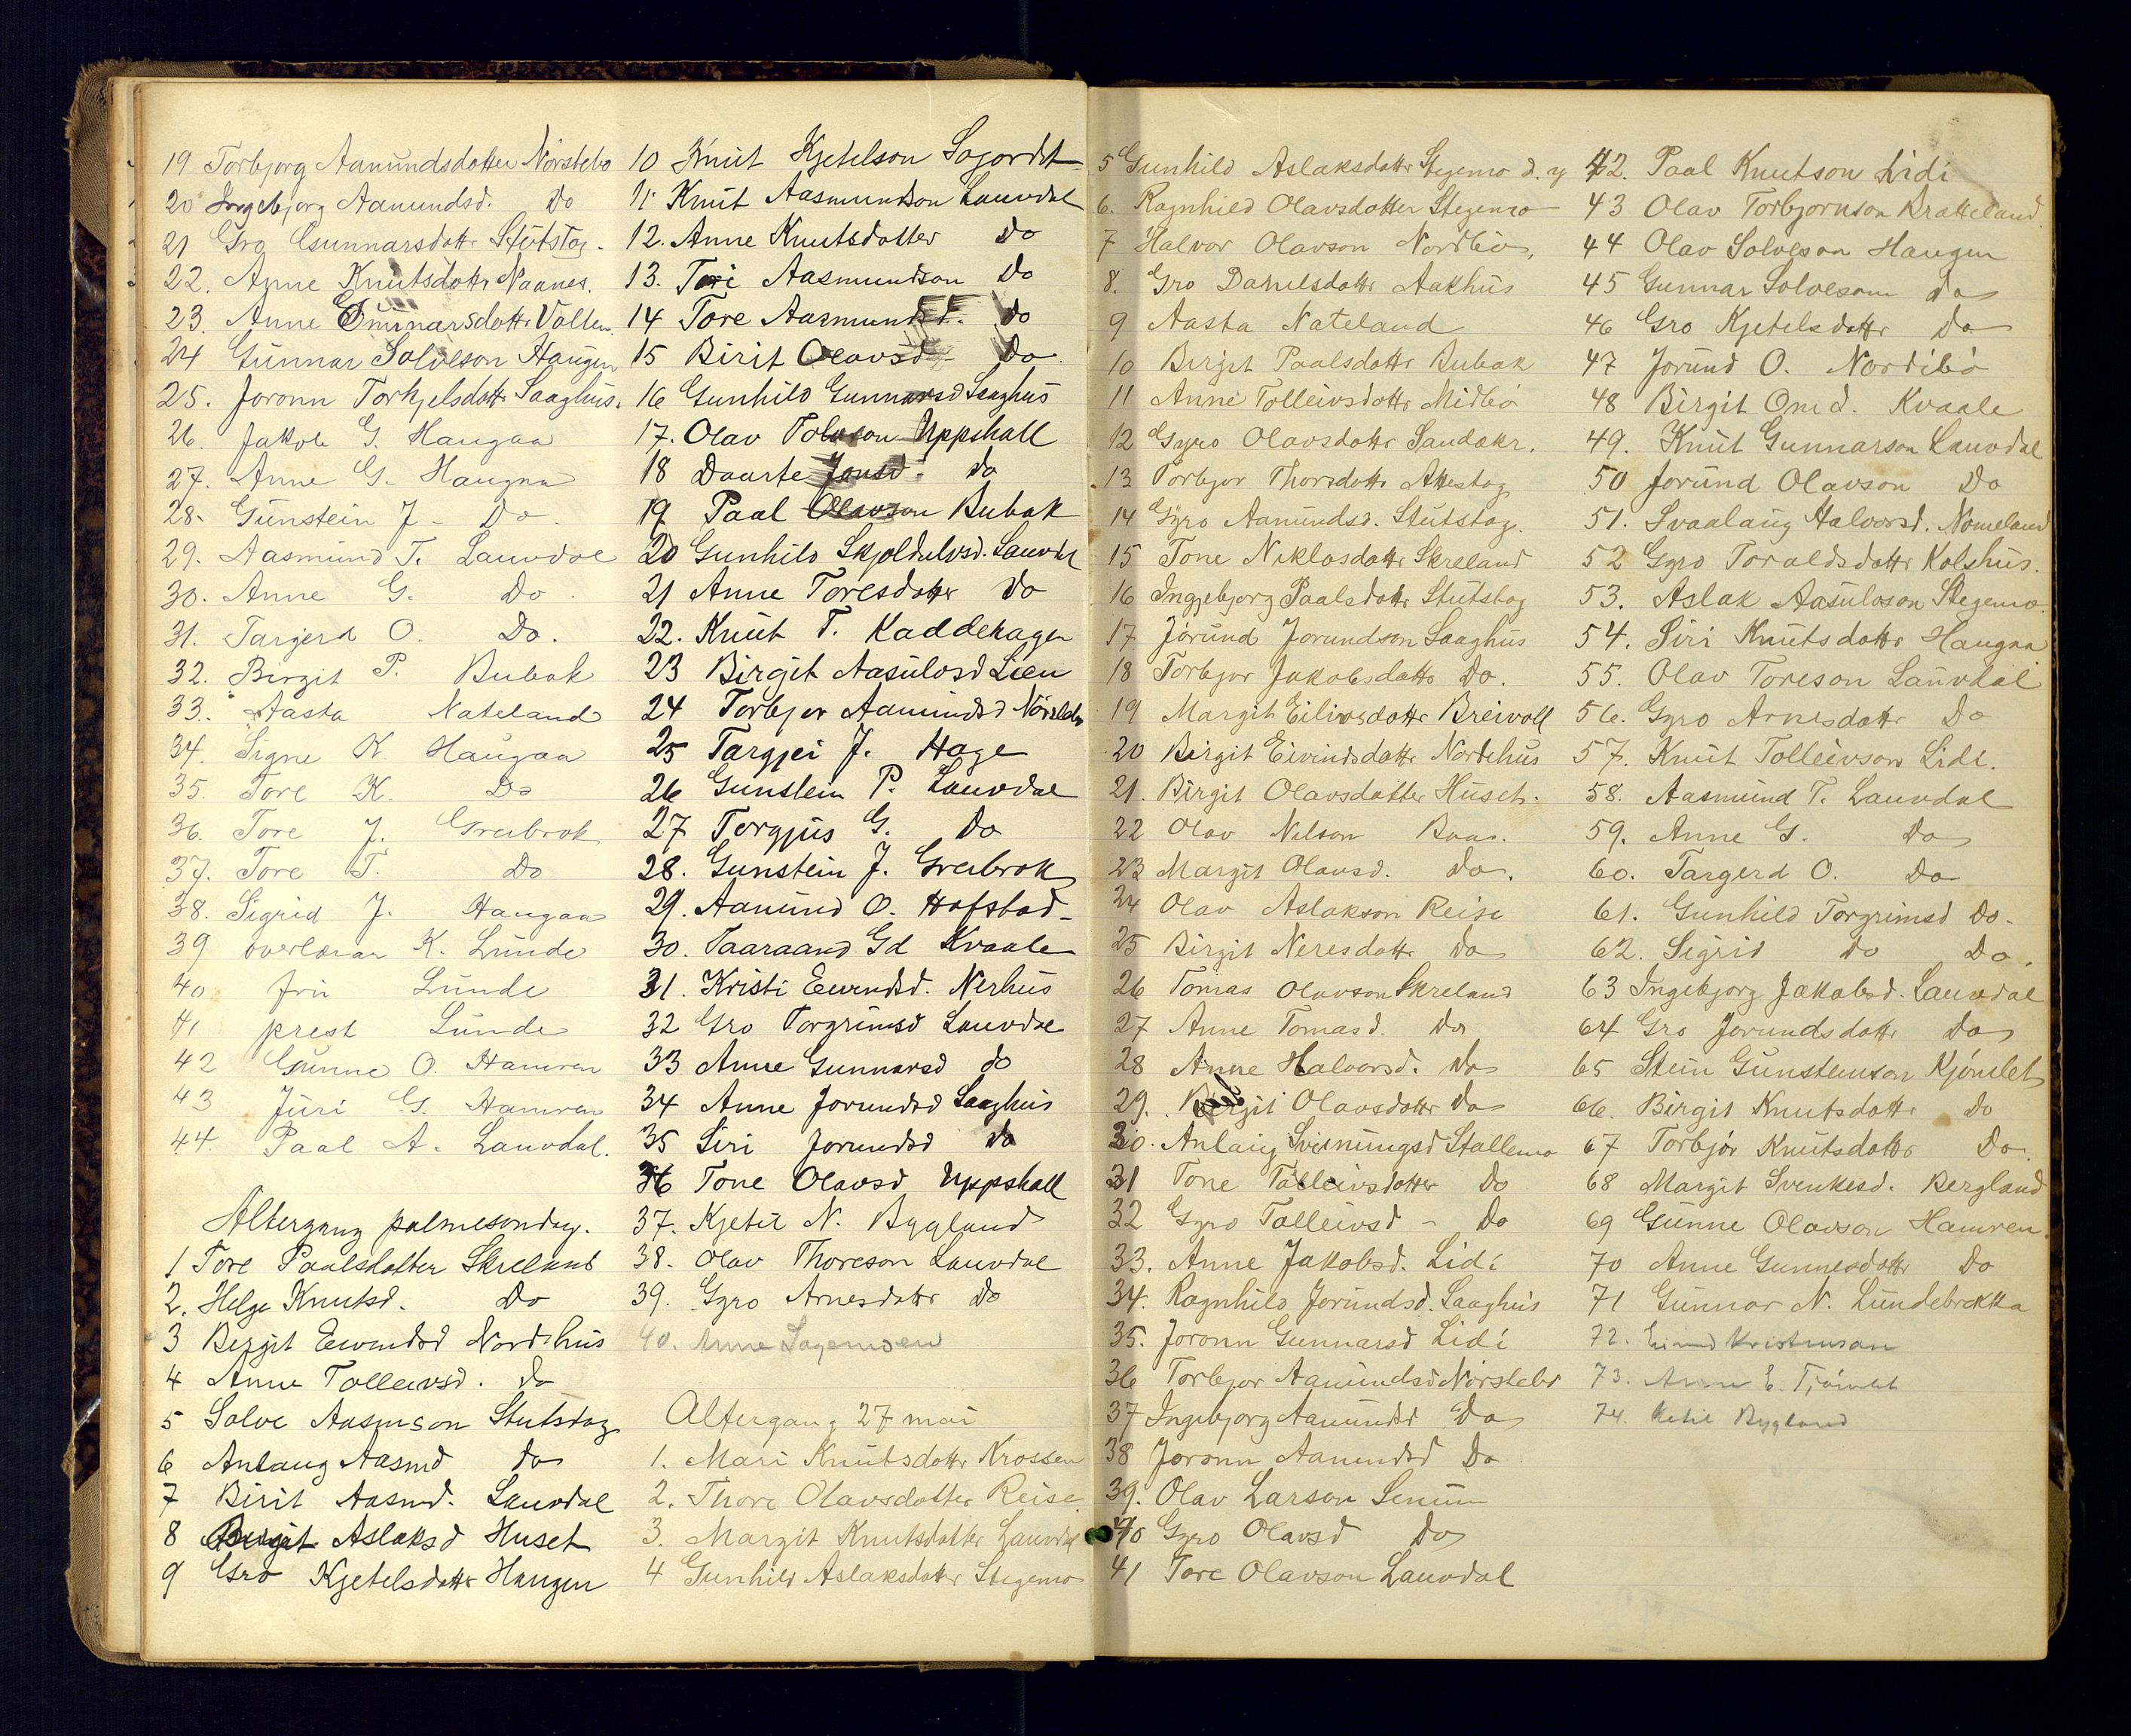 19 Torbjorg Aanundsdotter Nörstebo
20 Ingebjorg Aanundsd. Do
21 Gro Gunnarsdottr Stutstog.
22. Anne Knutsdottr Naanes.
23. Anne Gunnarsdottr Vollen.
24 Gunnar Solveson Haugen
25. Joronn Torkjelsdottr Saaghus.
26. Jakob G. Haugaa
27. Anne G. Haugaa
28. Gunstein J. Do.
29. Aasmund T. Lauvdal
30. Anne G. Do.
31. Targjerd O. Do.
32. Birgit P. Bubak
33. Aasta Nateland
34. Signe K. Haugaa
35. Tore K. Do
36. Tore J. Greibrok
37. Tore T. Do
38. Sigrid J. Haugaa
39 overlærar K. Lunde
40 fru Lunde
41 prest Lunde
42 Gunne O. Hamren
43 Juri G. Hamren
44. Paal A. Lauvdal.
Altergang palmesondag.
1 Tore Paalsdotter Skreland
2. Helge Knutsd. Do
3 Bergit Eivindsd Nordhus
4 Anne Tolleivsd. do
5 Salve Aasmson Stutstog
6 Anlaug Aasmd do
7 Birit Aasmd. Lauvdal
8 Birgit Aslaksd Huset
9 Gro Kjetelsdottr Haugen
10 Knut Kjetelson Sagordet
11 Knut Aasmundson Lauvdal
12. Anne Knutsdotter do
13. Tori Aasmundson do
14 Tore Aasmundsd. do
15 Birit Olavsd do
16 Gunhild Gunnarsd Saaghus
17. Olav Uppshall
18 Daarte Jonsd. do
19 Paal Olavson Bubak
20 Gunhild Skjoldulvsd. Lauvdal
21 Anne Toresdotter Do
22. Knut T. Kaddehagen
23 Birgit Aasulvsd Lien
24 Torbjor Aanundsd Nörstebo
25 Targjei J. Hage
26 Gunstein P. Lauvdal
27 Torgjus G. Do
28. Gunstein J. Greibrok
29. Aanund O. Hofstad
30. Taaraand Gd Kvaale
31. Kristi Eivindsd. Nerhus
32 Gro Torgrimsd Lauvdal
33 Anne Gunnarsd do
34 Anne Jorundsd Saaghus
35 Siri Jorundsd do
36 Tone Olavsd Uppshall
37. Kjetil N. Bygland
38. Olav Thoreson Lauvdal
39. Gyro Arnesdottr do
40. Anne Sagemoen
Altergang 27 mai
1. Mari Knutsdottr Krossen
2. Thore Olavsdotter Reise.
3. Margit Knutsdotter Lauvdal
4 Gunhild Aslaksdotter Stegemo
5 Gunhild Aslaksdottr Stegemo d. y
6. Ragnhild Olavsdotter Stegemo
7 Halvor Olavson Nordbö.
8. Gro Danielsdottr Aakhus
9 Aasta Nateland
10 Birgit Paalsdottr Bubak
11 Anne Tolleivsdottr Midbö
12 Gyro Olavsdottr Sandakr.
13 Torbjor Thorsdottr Attestog
14 Gyro Aanundsd. Stutstog.
15 Tone Niklosdottr Skreland
16 Ingjebjorg Paalsdottr Stutstog
17. Jorund Jorundson Saaghus
18 Torbjor Jakobsdottr Do.
19 Margit Eilivsdottr Breivoll
20 Birgit Eivindsdottr Nordhus
21. Birgit Olavsdotter Huset.
22 Olav Nilson Baas.
23 Margit Olavsd. Do.
24 Olav Aslakson Reise
25 Birgit Neresdottr Do
26 Tomas Olavson Skreland
27 Anne Tomasd. Do
28 Anne Halvorsd. Do
29. Birgit Olavsdottr Do
30. Anlaug Sveinungsd Stallemo
31 Tone Talleivsdotter Do
32 Gyro Talleivsd - Do
33. Anne Jakobsd. Lidi
34. Ragnhild Jorundsd. Saaghus
35. Joronn Gunnarsd Lidi
36 Torbjor Aanundsd Nörstebö
37 Ingebjorg Aanundsd Do
38 Joronn Aanundsd Do.
39. Olav Larson Senum
40 Gyro Olavsd Do
41 Tore Olavson Lauvdal
42. Paal Knutson Lidi
43 Olav Torbjornson Bratteland
44 Olav Solveson Haugen
45 Gunnar Solveson do
46 Gro Kjetelsdottr Do
47 Jorund O. Nordibö
48 Birgit Omd. Kvaale
49. Knut Gunnarson Lauvdal
50 Jorund Olavson Do
51. Svaalaug Halvorsd. Nomeland
52 Gyro Toraldsdottr Kolshus.
53. Aslak Aasulvson Stegemo.
54. Siri Knutsdottr Haugaa
55. Olav Toreson Lauvdal
56. Gyro Arnesdottr Do
57. Knut Tolleivson Lidi.
58. Aasmund T. Lauvdal
59. Anne G. Do
60. Targerd O. Do
61. Gunhild Torgrimsd Do.
62. Sigrid do Do.
63 Ingebjorg Jakobsd. Lauvdal
64 Gro Jorundsdottr Do
65 Stein Gunsteinson Kjömlet
66. Birgit Knutsdottr Do
67 Torbjör Knutsdottr Do.
68 Margit Svenkesd. Bergland
69 Gunne Olavson Hamren.
70 Anne Gunnesdottr Do
71 Gunnar N. Lundebrekka
72. Eivind Kristenson
73. Anne E. Tjömlet
74. Ketil Bygland